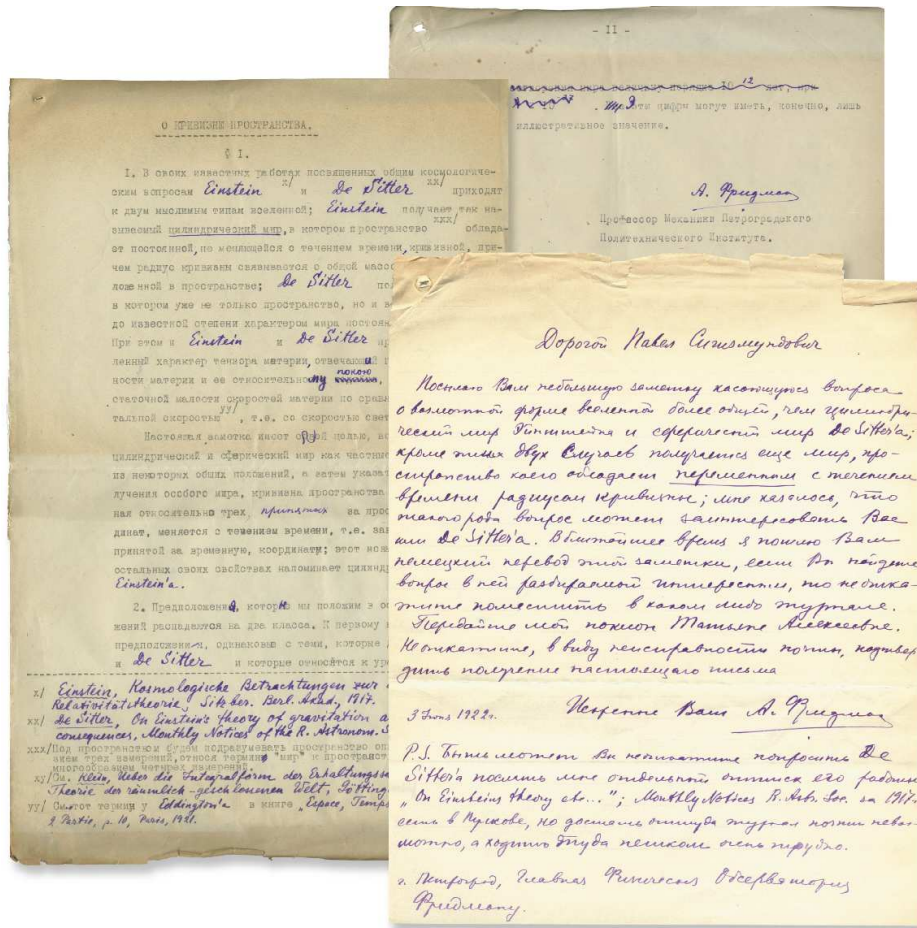 О КРИВИЗНЕ ПРОСТРАНСТВА.
§ I.
I. В своих известных работах посвященных общим космологиче-
ским вопросам Einstein x/ и De Sitter xx/ приходят
к двум мыслимым типам вселенной; Einstein получает так на-
зываемый цилиндрический мир, в котором пространство xxx/ облада-
ет постоянной, не меняющейся с течением времени, кривизной, при-
чем радиус кривизны связывается с общей массо
ложенной в пространстве; De Sitter по
в котором уже не только пространство, но и в
до известной степени характером мира постоян
При этом и Einstein и De Sitter пр
ленный характер тензора материи, отвечающий
ности материи и ее относительному покою
статочной малости скоростей материи по срав
тальной скоростью yy/, т.е. со скоростью свет
Настоящая заметка имеет целью,
цилиндрический и сферический мир как частные
из некоторых общих положений, а затем указат
лучения особого мира, кривизна пространства
ная относительно трех, принятых за прос
динат, меняется с течением времени, т.е. зав
принятой за временную, координаты; этот
остальных своих свойствах напоминает цилинд
Einstein'a.
2. Предположения, которые мы положим в ос
жений распадаются на два класса. К первому
предположения, одинаковые с теми, которые
и De Sitter и которые относятся к ур
x/ Einstein, Kosmologische Betrachtungen zur
Relativitätstheorie, Sitz. ber. Berl. Akad. 1917.
xx/ De Sitter, On Einstein's theory of gravitation a
consequences, Monthly Notices of the R. Astronom. S
xxx/ Под пространством будем подразумевать пространство оп
мое трех измерений, относя термин "мир" к пространст
многообразием четырех измерений.
xy/ См. Klein, Ueber die Integralform der Erhaltungs
Theorie der räumlich-geschlossenen Welt, Götting
yy/ См. этот термин у Eddington'a в книге „Espace, Temps
2 Partie, p. 10, Paris, 1921.
- 11 -
12
Эти цифры могут иметь, конечно, лишь
иллюстративное значение.
А. Фридман
Профессор Механики Петроградского
Политехнического Института.
Дорогой Павел Сигизмундович
Посылаю Вам небольшую заметку касающуюся вопроса
о возможной форме вселенной более общей, чем цилиндри-
ческий мир Эйнштейна и сферический мир De Sitter'a;
кроме этих двух случаев получается еще мир, про-
странство коего обладает переменным с течением
времени радиусом кривизны; мне казалось, что
такого рода вопрос может заинтересовать Вас
или De Sitter'a. В ближайшее время я пошлю Вам
немецкий перевод этой заметки, если Вы найдете
вопрос в ней разбираемый интересным, то не отка-
жите поместить в каком либо журнале.
Передайте мой поклон Татьяне Алексеевне.
Не откажите, в виду неисправности почты, подтвер-
дить получение настоящего письма
3 Июня 1922 г. Искренне Ваш А. Фридман
P.S. Быть может Вы не откажите попросить De
Sitter'a послать мне отдельный оттиск его работы
„On Einsteins theory etc..."; Monthly Notices R. Astr. Soc. за 1917.
есть в Пулкове, но достать оттуда журнал почти невоз-
можно, а ходить туда пешком очень трудно.
г. Петроград, Главная Физическая Обсерватория
Фридману.